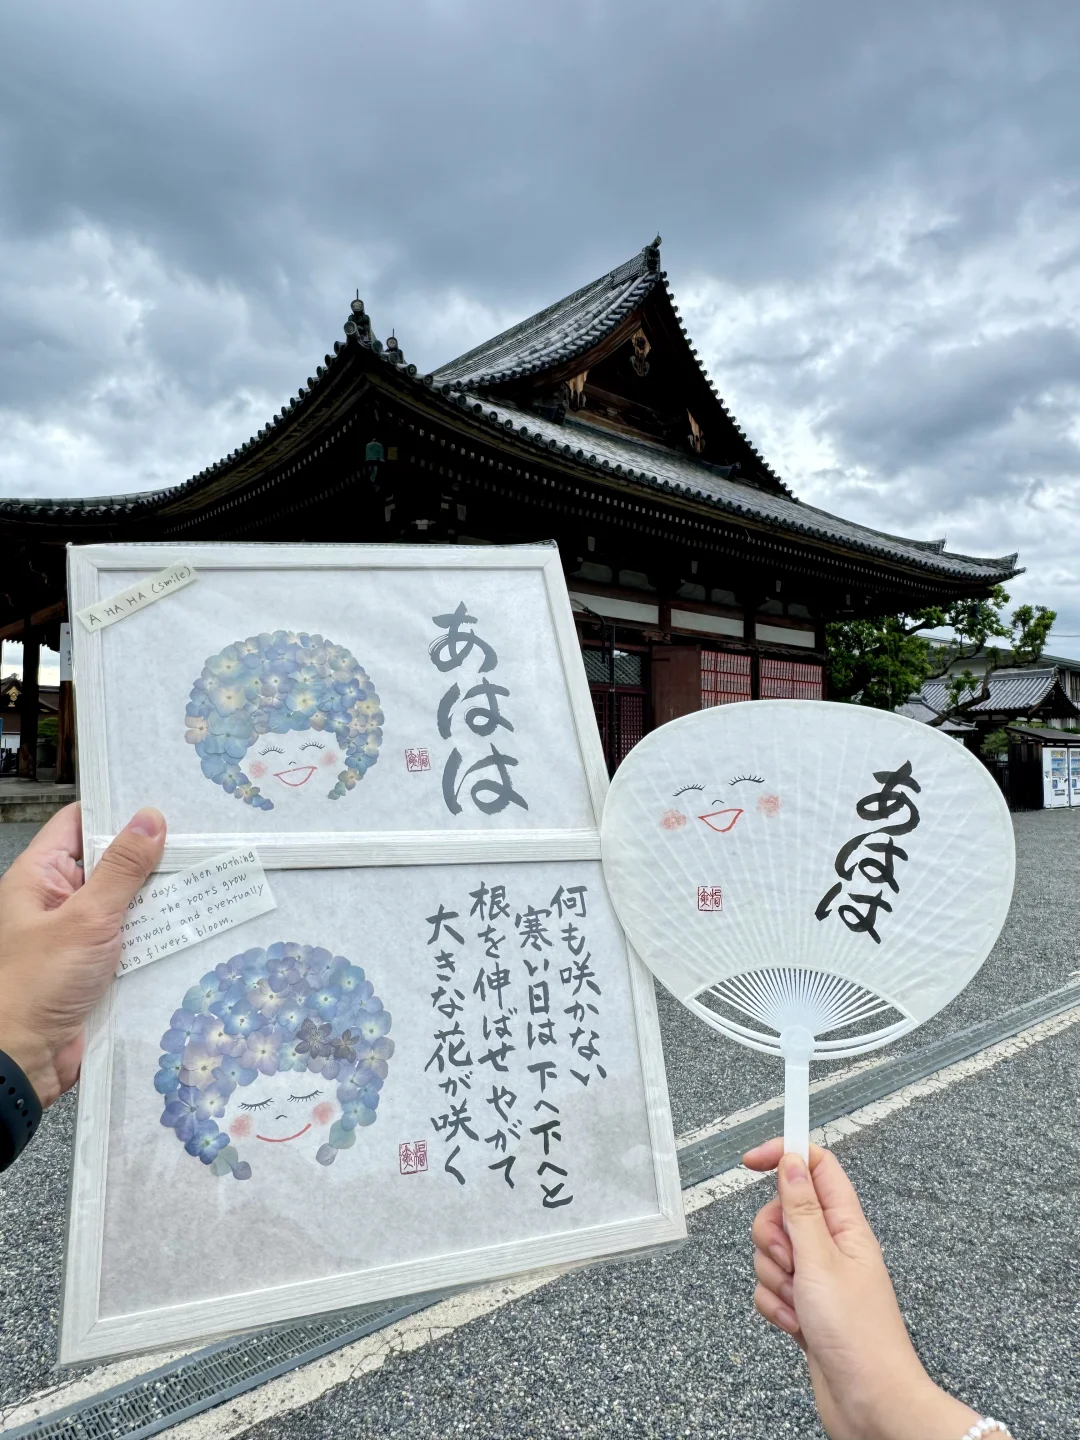 A HA HA (smile)
あはは
old days when nothing
ooms. the roots grow
ownward and eventually
big flwers bloom.
何も咲かない
寒い日は下へ下へと
根を伸ばせやがて
大きな花が咲く
あはは